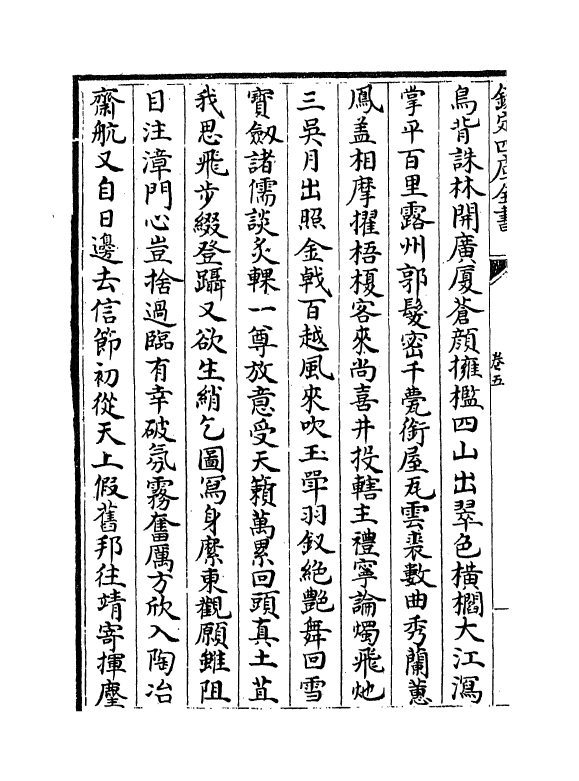 欽定四庫全書
卷五
鳥背誅林開廣厦蒼顔擁檻四山出翠色橫櫩大江瀉
掌平百里露州郭髮密千甍銜屋瓦雲裘數曲秀蘭蕙
鳳盖相摩擢梧檟客來尚喜井投轄主禮寧論燭飛灺
三吳月出照金戟百越風來吹玉斝羽釵絶艶舞回雪
寳劔諸儒談炙輠一尊放意受天籟萬累回頭真土苴
我思飛步綴登躡又欲生綃乞圖寫身縻東觀願雖阻
目注漳門心豈捨過臨有幸破氛霧奮厲方欣入陶冶
齋航又自日邊去信節初從天上假舊邦往靖寄揮麈